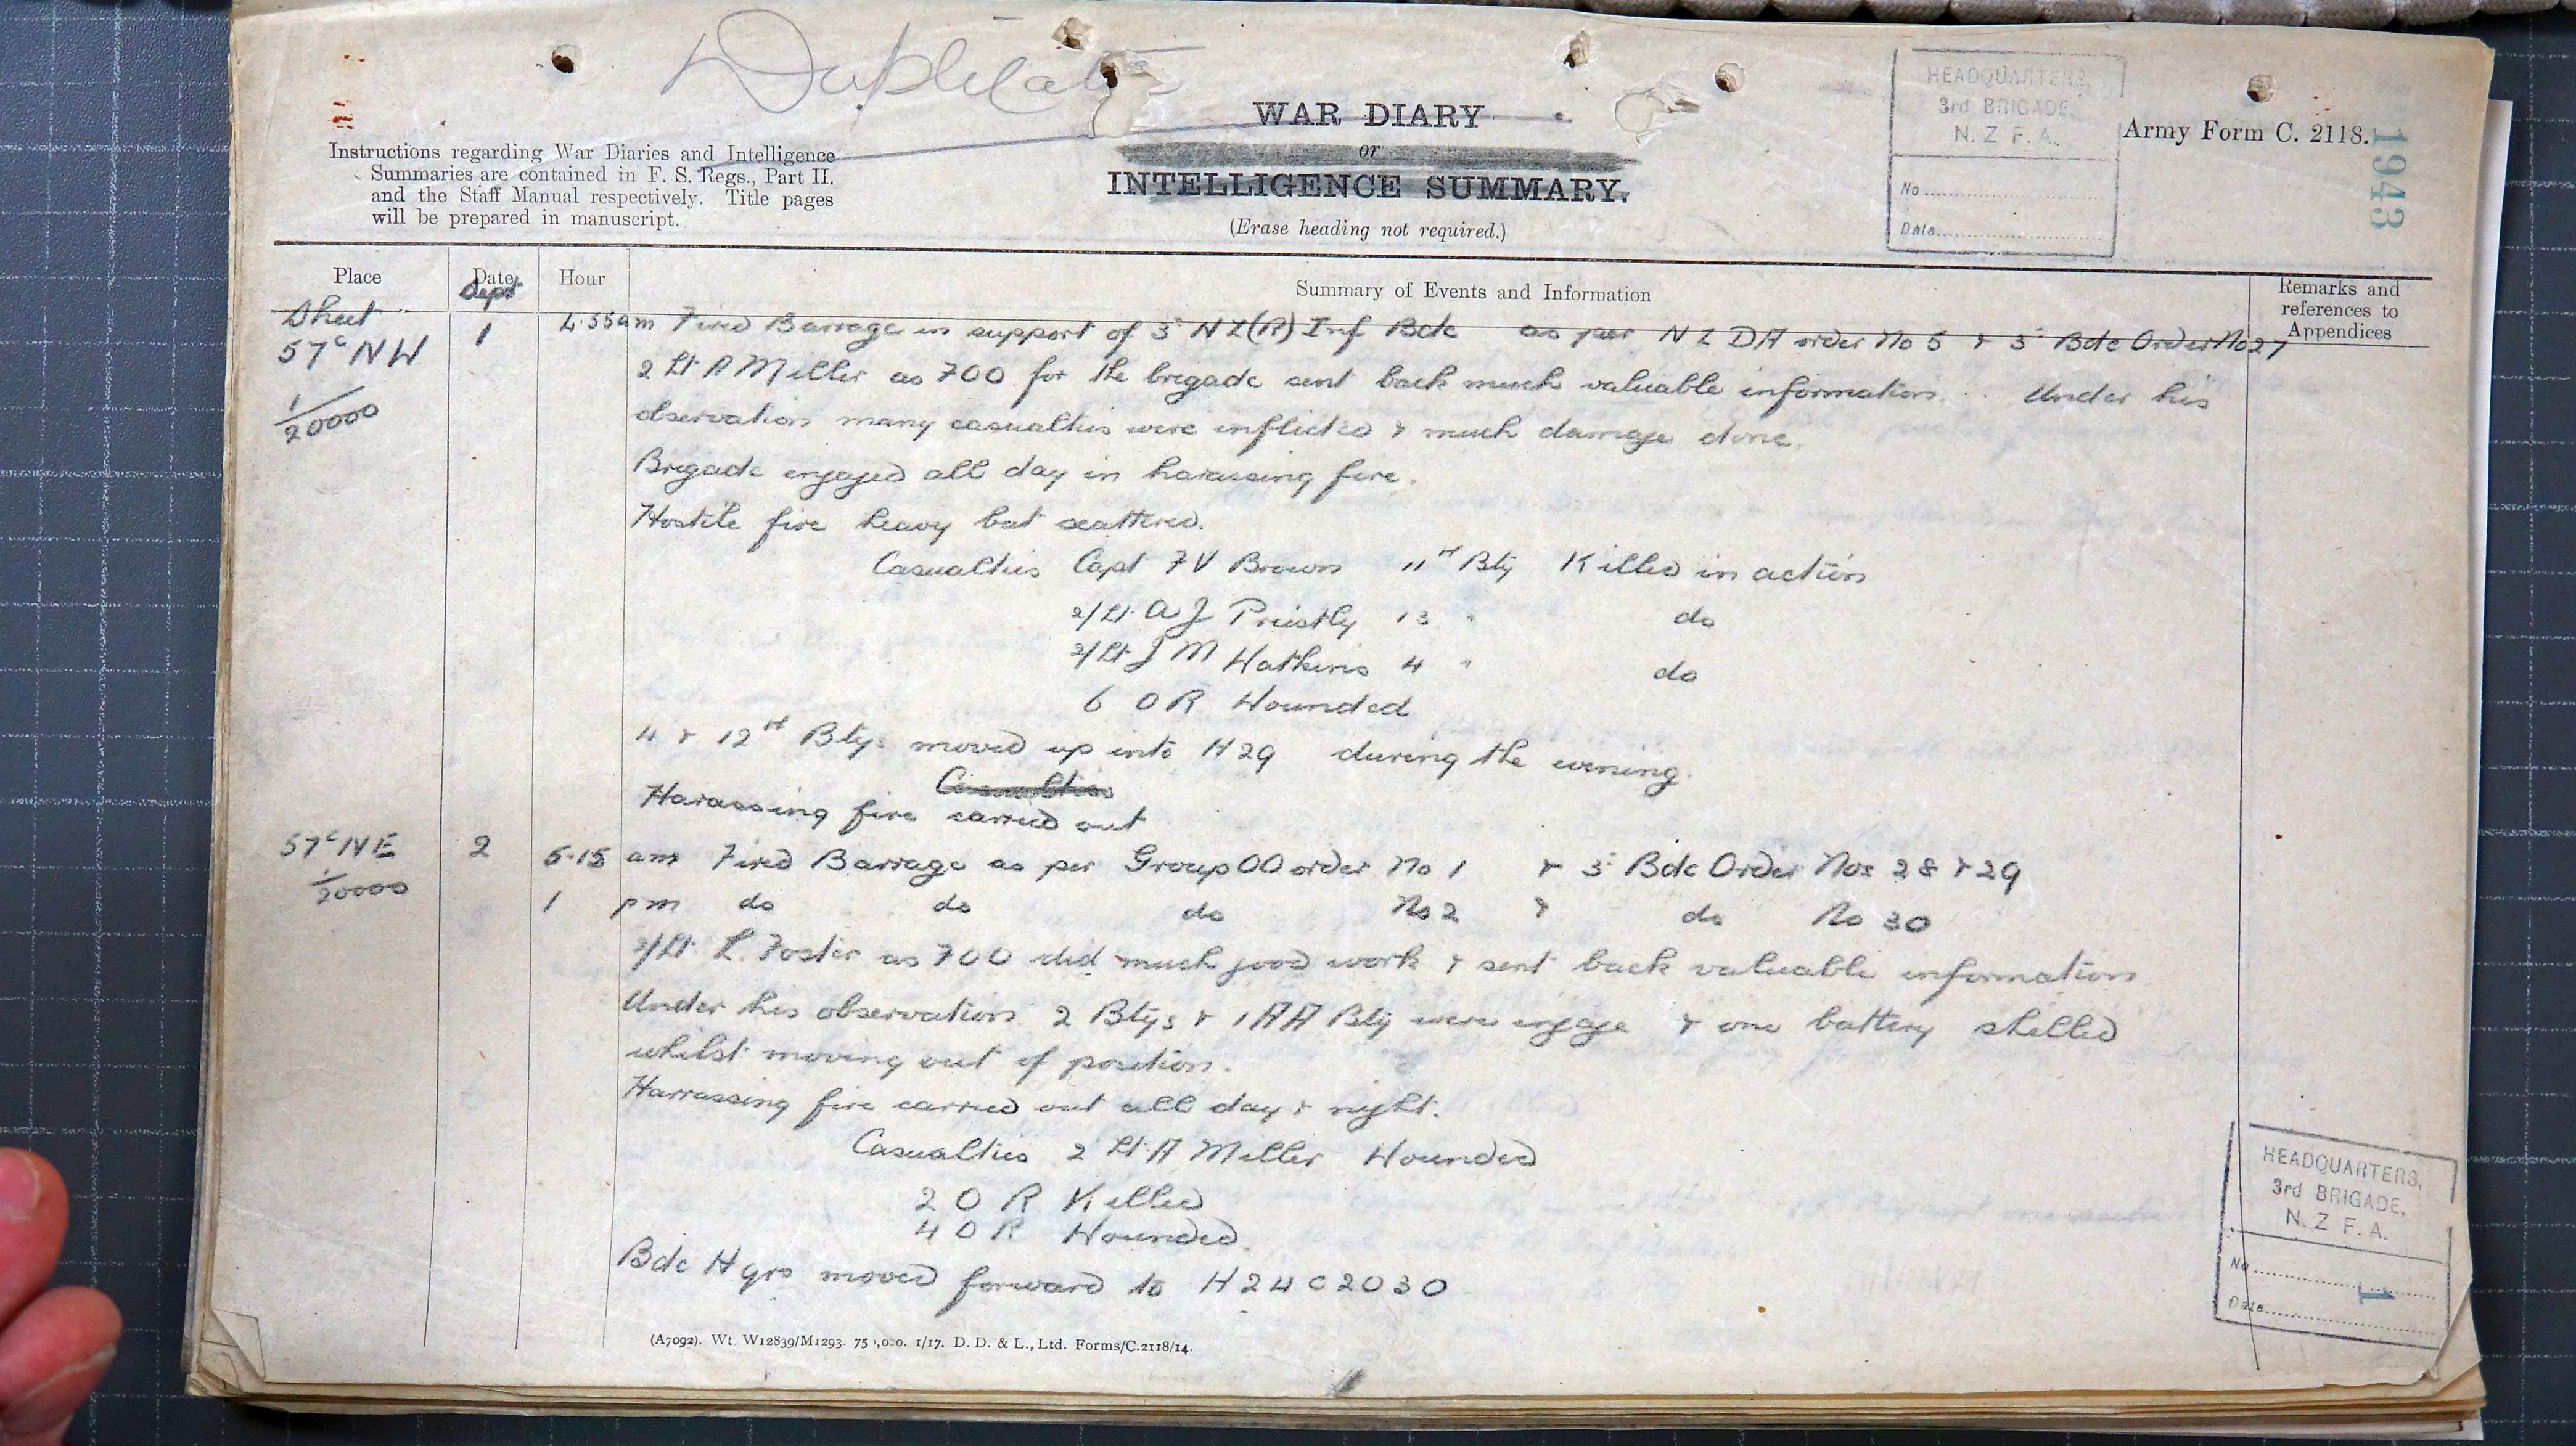 Duplicate
WAR DIARY
or
INTELLIGENCE SUMMARY.
(Erase heading not required.)
Instructions regarding War Diaries and Intelligence
Summaries are contained in F. S. Regs., Part II.
and the Staff Manual respectively. Title pages
will be prepared in manuscript.
HEADQUARTERS,
3rd BRIGADE,
N. Z. F. A.
No
Date
Army Form C. 2118.
1943
Place Date Hour Summary of Events and Information Remarks and references to Appendices
Sept
Sheet
57c NW
1/20000
1 4.55am Fired Barrage in support of 3 NZ(R) Inf Bde as per NZDA order No 5 & 3 Bde Order No 27
2 Lt A Miller as FOO for the brigade sent back much valuable information. Under his
observation many casualties were inflicted & much damage done.
Brigade engaged all day in harassing fire.
Hostile fire heavy but scattered.
Casualties Capt F V Brown 11th Bty Killed in action
2/Lt A J Priestly 13 " do
2/Lt J M Watkins 4 " do
6 OR Wounded
4 & 12th Btys moved up into H29 during the evening.
Casualties
Harassing fire carried out
57c NE 2 5.15 am Fired Barrage as per Group OO order No 1 & 3 Bde Order Nos 28 & 29
1/20000
1 pm do do do No 2 & do No 30
2/Lt L. Foster as FOO did much good work & sent back valuable information
Under his observation 2 Btys & 1 AA Bty were engage & one battery shelled
whilst moving out of position.
Harrassing fire carried out all day & night.
Casualties 2 Lt A Miller Wounded
2 OR Killed
4 OR Wounded.
Bde H qrs moved forward to H24C2030
HEADQUARTERS,
3rd BRIGADE,
N. Z. F. A.
No
1
Date
(A7092). Wt. W12839/M1293. 75 ,0.0. 1/17. D. D. & L., Ltd. Forms/C.2118/14.